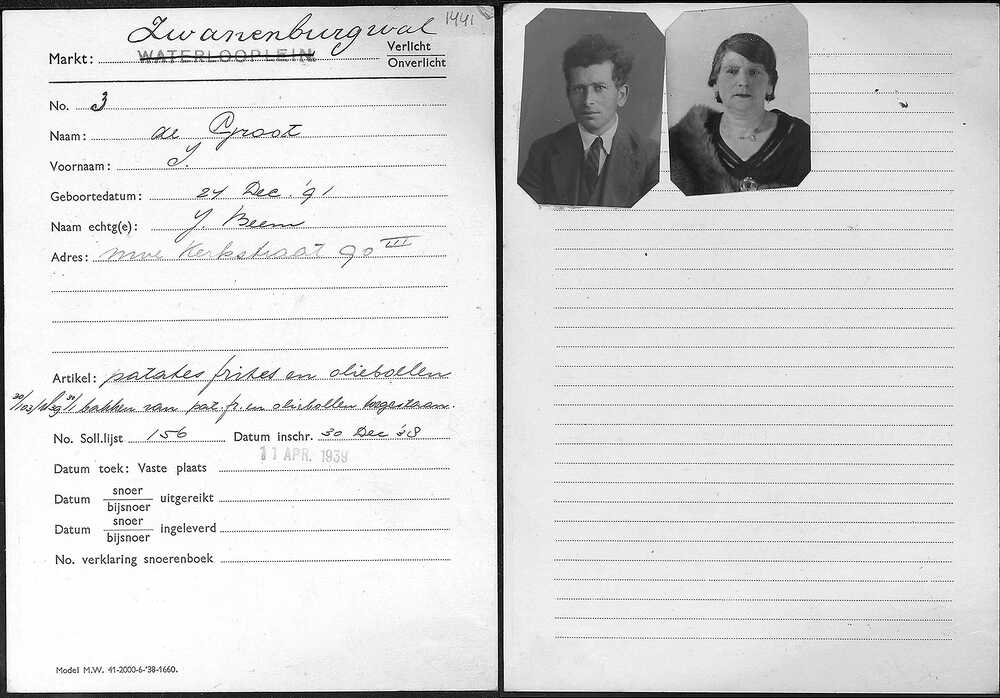 1441
Zwanenburgwal
Markt: WATERLOOPLEIN Verlicht
Onverlicht
No. 3
Naam: de Groot
Voornaam: J.
Geboortedatum: 24 Dec. '91
Naam echtg(e): J. Beem
Adres: nwe Kerkstraat 90 III
Artikel: patates frites en oliebollen
bakken van pat. fr. en oliebollen toegestaan.
No. Soll.lijst 156 Datum inschr. 30 Dec '38
11 APR. 1939
Datum toek: Vaste plaats
Datum snoer uitgereikt
bijsnoer
Datum snoer ingeleverd
bijsnoer
No. verklaring snoerenboek
Model M.W. 41-2000-6-'38-1660.